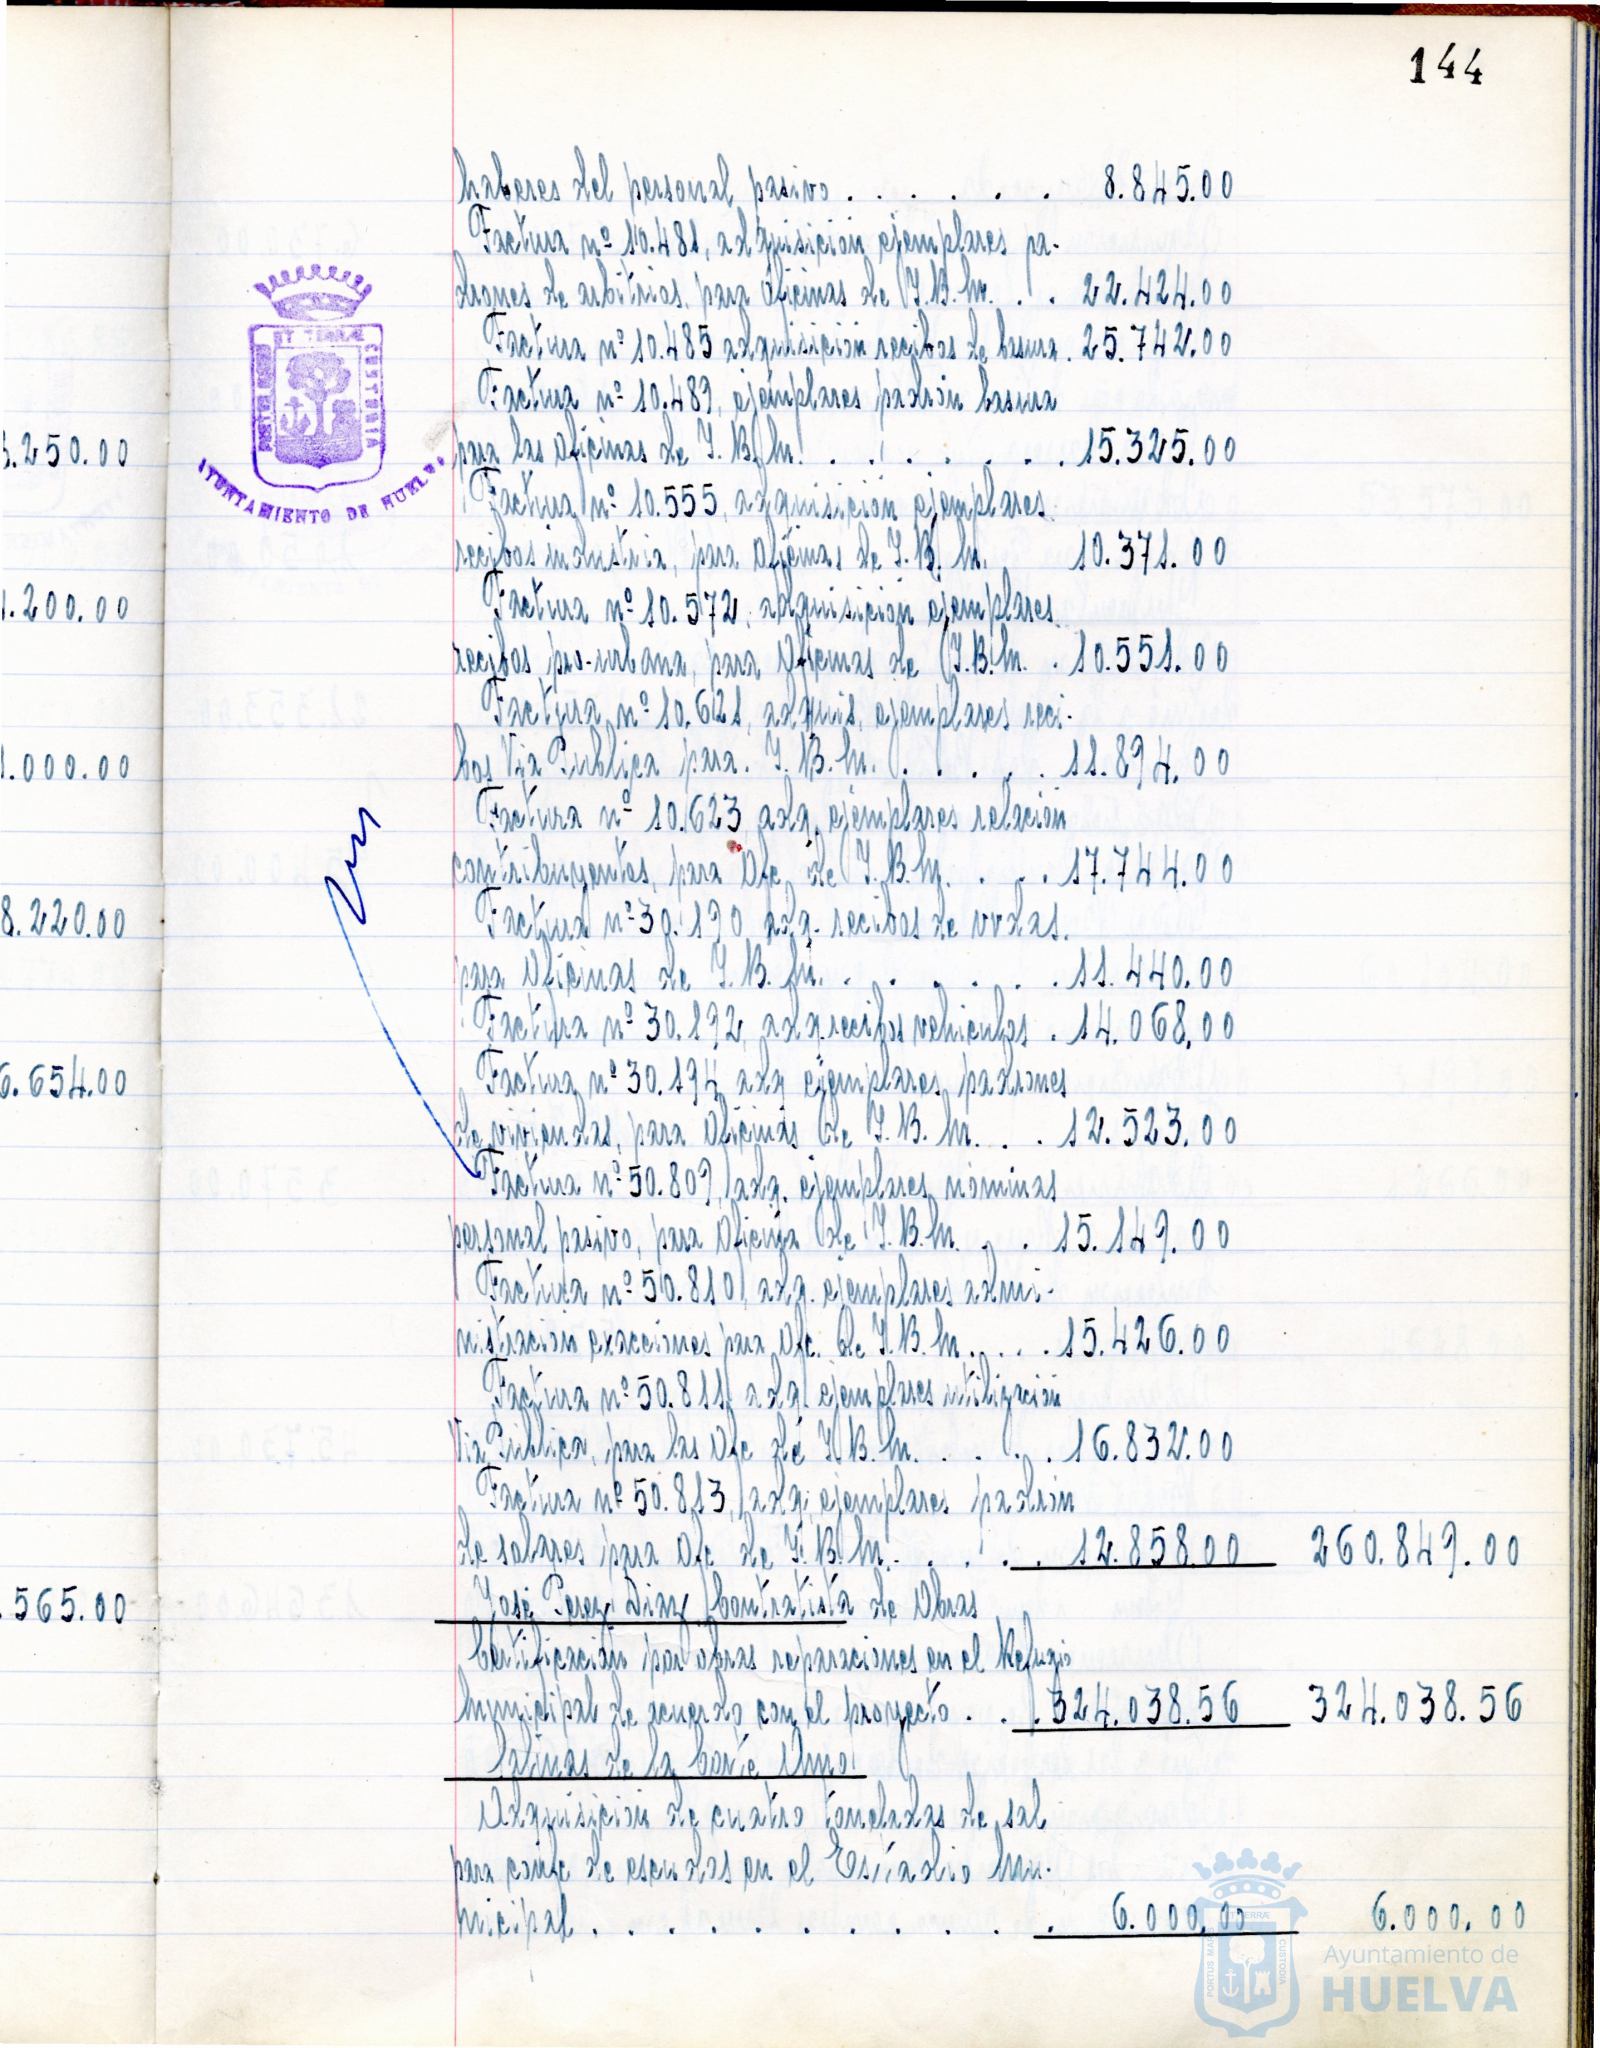 144
haberes del personal pasivo . . . . . . 8.845.00
Factura nº 10.481, adquisición ejemplares pa-
drones de arbitrios, para Oficinas de I.B.M. . . 22.424.00
Factura nº 10.485 adquisición recibos de basura . 25.742.00
Factura nº 10.489, ejemplares padrón basura
para las Oficinas de I.B.M. . . . . . . . 15.325.00
Factura nº 10.555, adquisición ejemplares
recibos industria, para Oficinas de I.B.M. 10.371.00
Factura nº 10.572, adquisición ejemplares
recibos pro-urbana, para Oficinas de I.B.M. . 10.551.00
Factura nº 10.621, adquis. ejemplares reci-
bos Via Publica para. I.B.M. . . . . . 11.894.00
Factura nº 10.623, adq. ejemplares relación
contribuyentes, para Ofc. de I.B.M. . . . 17.744.00
Factura nº 30.190 adq. recibos de vvdas.
para Oficinas de I.B.M. . . . . . . 11.440.00
Factura nº 30.192, adq. recibos vehiculos . 14.068,00
Factura nº 30.194 adq ejemplares padrones
de viviendas, para Oficinas de I.B.M. . . 12.523.00
Factura nº 50.809, adq. ejemplares nóminas
personal pasivo, para Oficina de I.B.M. . . 15.149.00
Factura nº 50.810, adq. ejemplares admi-
nistración exacciones para Ofc. de I.B.M. . . . 15.426.00
Factura nº 50.811, adq. ejemplares utilización
Via Pública, para las Ofc de I.B.M. . . . . 16.832.00
Factura nº 50.813, adq. ejemplares padrón
de solares para Ofc de I.B.M. . . . . 12.858.00 260.849.00
José Perez Diaz, Contratista de Obras
Certificación por obras reparaciones en el Refugio
Municipal de acuerdo con el proyecto . . . 324.038.56 324.038.56
Salinas de la Corte
Adquisición de cuatro toneladas de sal
para de en el Estadio Mu-
nicipal . . . . . . . . . 6.000,00 6.000,00
250.00
.200.00
.000.00
8.220.00
6.654.00
.565.00
PORTUS MARIS ET TERRAE CUSTODIA
AYUNTAMIENTO DE HUELVA
PORTUS MARIS ET TERRÆ CUSTODIA
Ayuntamiento de
HUELVA